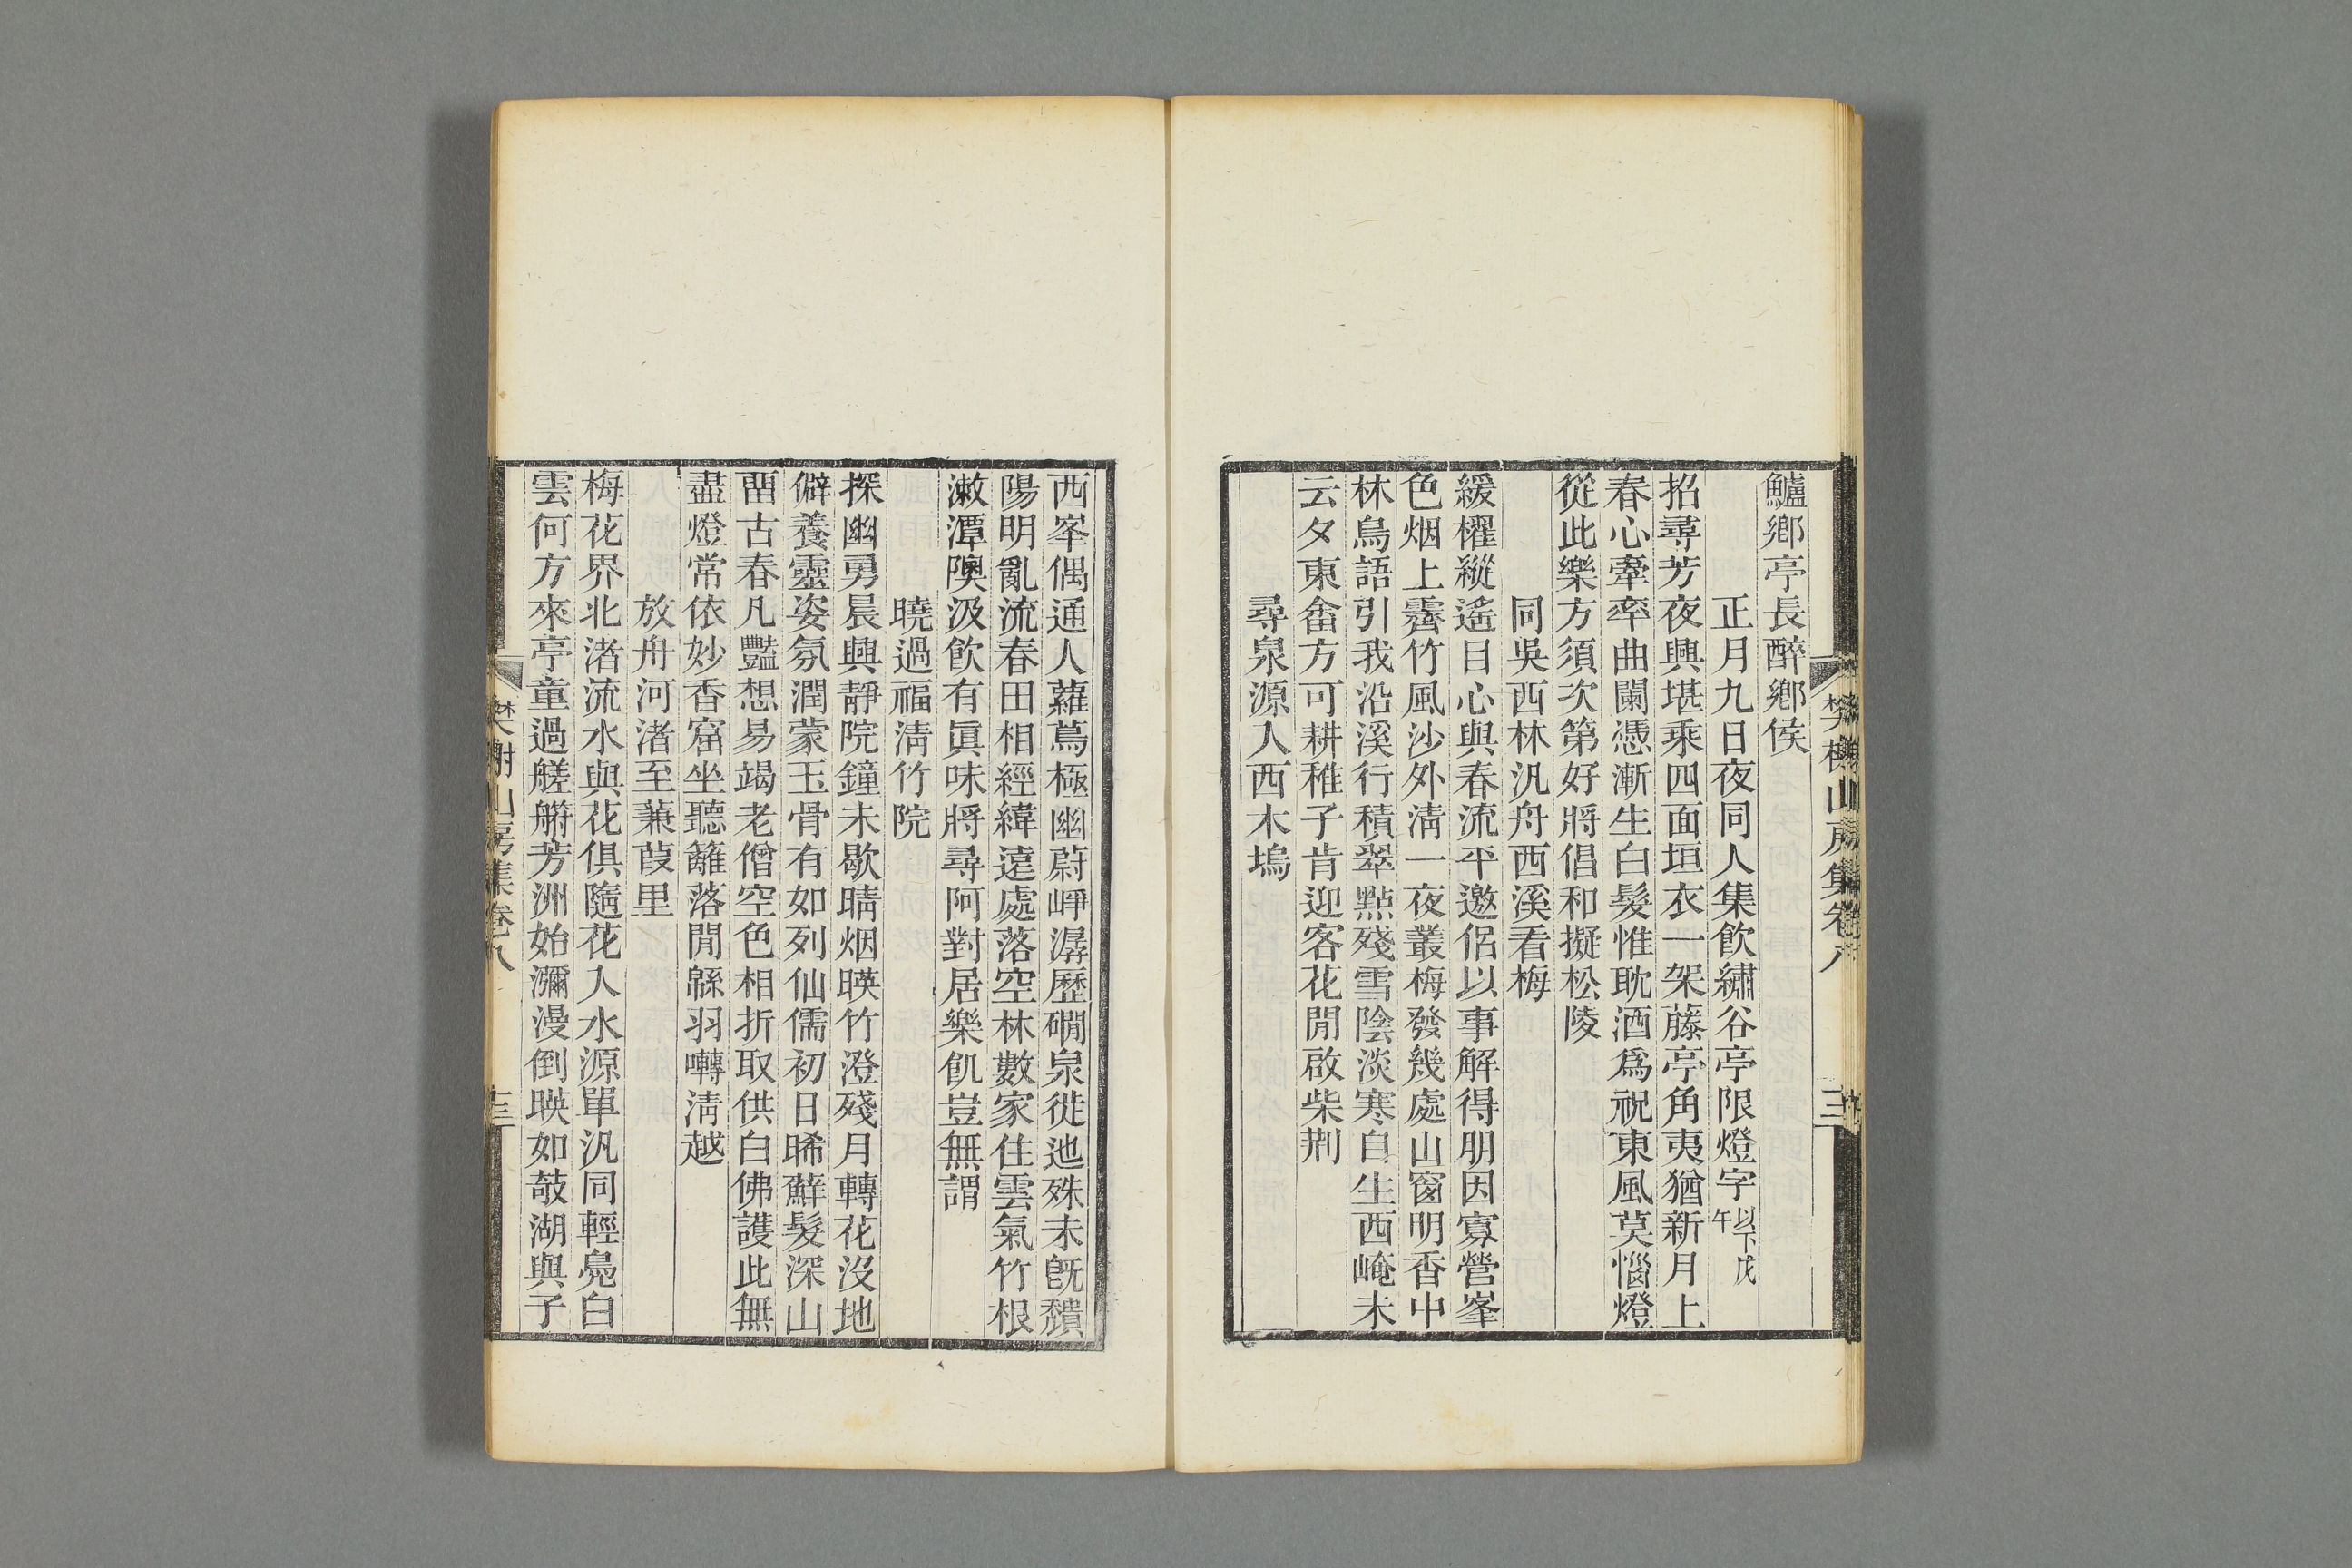 鱸鄉亭長醉鄉侯
正月九日夜同人集飲繡谷亭限燈字以下戊午
招尋芳夜興堪乘四面垣衣一架藤亭角夷猶新月上
春心牽率曲闌憑漸生白髮惟耽酒爲祝東風莫惱燈
從此樂方須次第好將倡和擬松陵
同吳西林汎舟西溪看梅
緩櫂縱遙目心與春流平邀侶以事解得朋因寡營峯
色烟上霽竹風沙外淸一夜叢梅發幾處山窗明香中
林鳥語引我沿溪行積翠點殘雪陰淡寒自生西崦未
云夕東畬方可耕稚子肯迎客花閒啟柴荆
尋泉源入西木塢
西峯偶通人蘿蔦極幽蔚崢潺歷磵泉徙迆殊未旣穨
陽明亂流春田相經緯遠處落空林數家住雲氣竹根
漱潭隩汲飮有眞味將尋阿對居樂飢豈無謂
曉過福淸竹院
探幽勇晨興靜院鐘未歇晴烟暎竹澄殘月轉花沒地
僻養靈姿氛潤蒙玉骨有如列仙儒初日晞蘚髮深山
畱古春凡豔想易竭老僧空色相折取供白佛護此無
盡燈常依妙香窟坐聽籬落閒緜羽囀淸越
放舟河渚至蒹葭里
梅花界北渚流水與花俱隨花入水源單汎同輕鳧白
雲何方來亭童過艖䑰芳洲始瀰漫倒暎如敧湖與子
樊榭山房集卷八